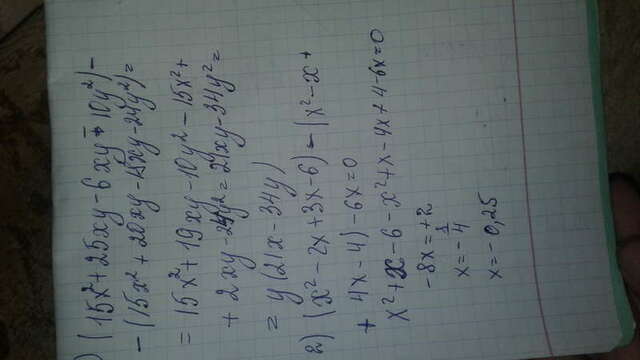 ) (15x²+25xy-6xy-10y²)-
-(15x²+20xy-18xy-24y²)=
=15x²+19xy-10y²-15x²+
+2xy-24y²=21xy-34y²=
=y(21x-34y)
2) (x²-2x+3x-6)-(x²-x+
+4x-4)-6x=0
x²+x-6-x²+x-4x+4-6x=0
-8x=+2
x=-1/4
x=-0,25